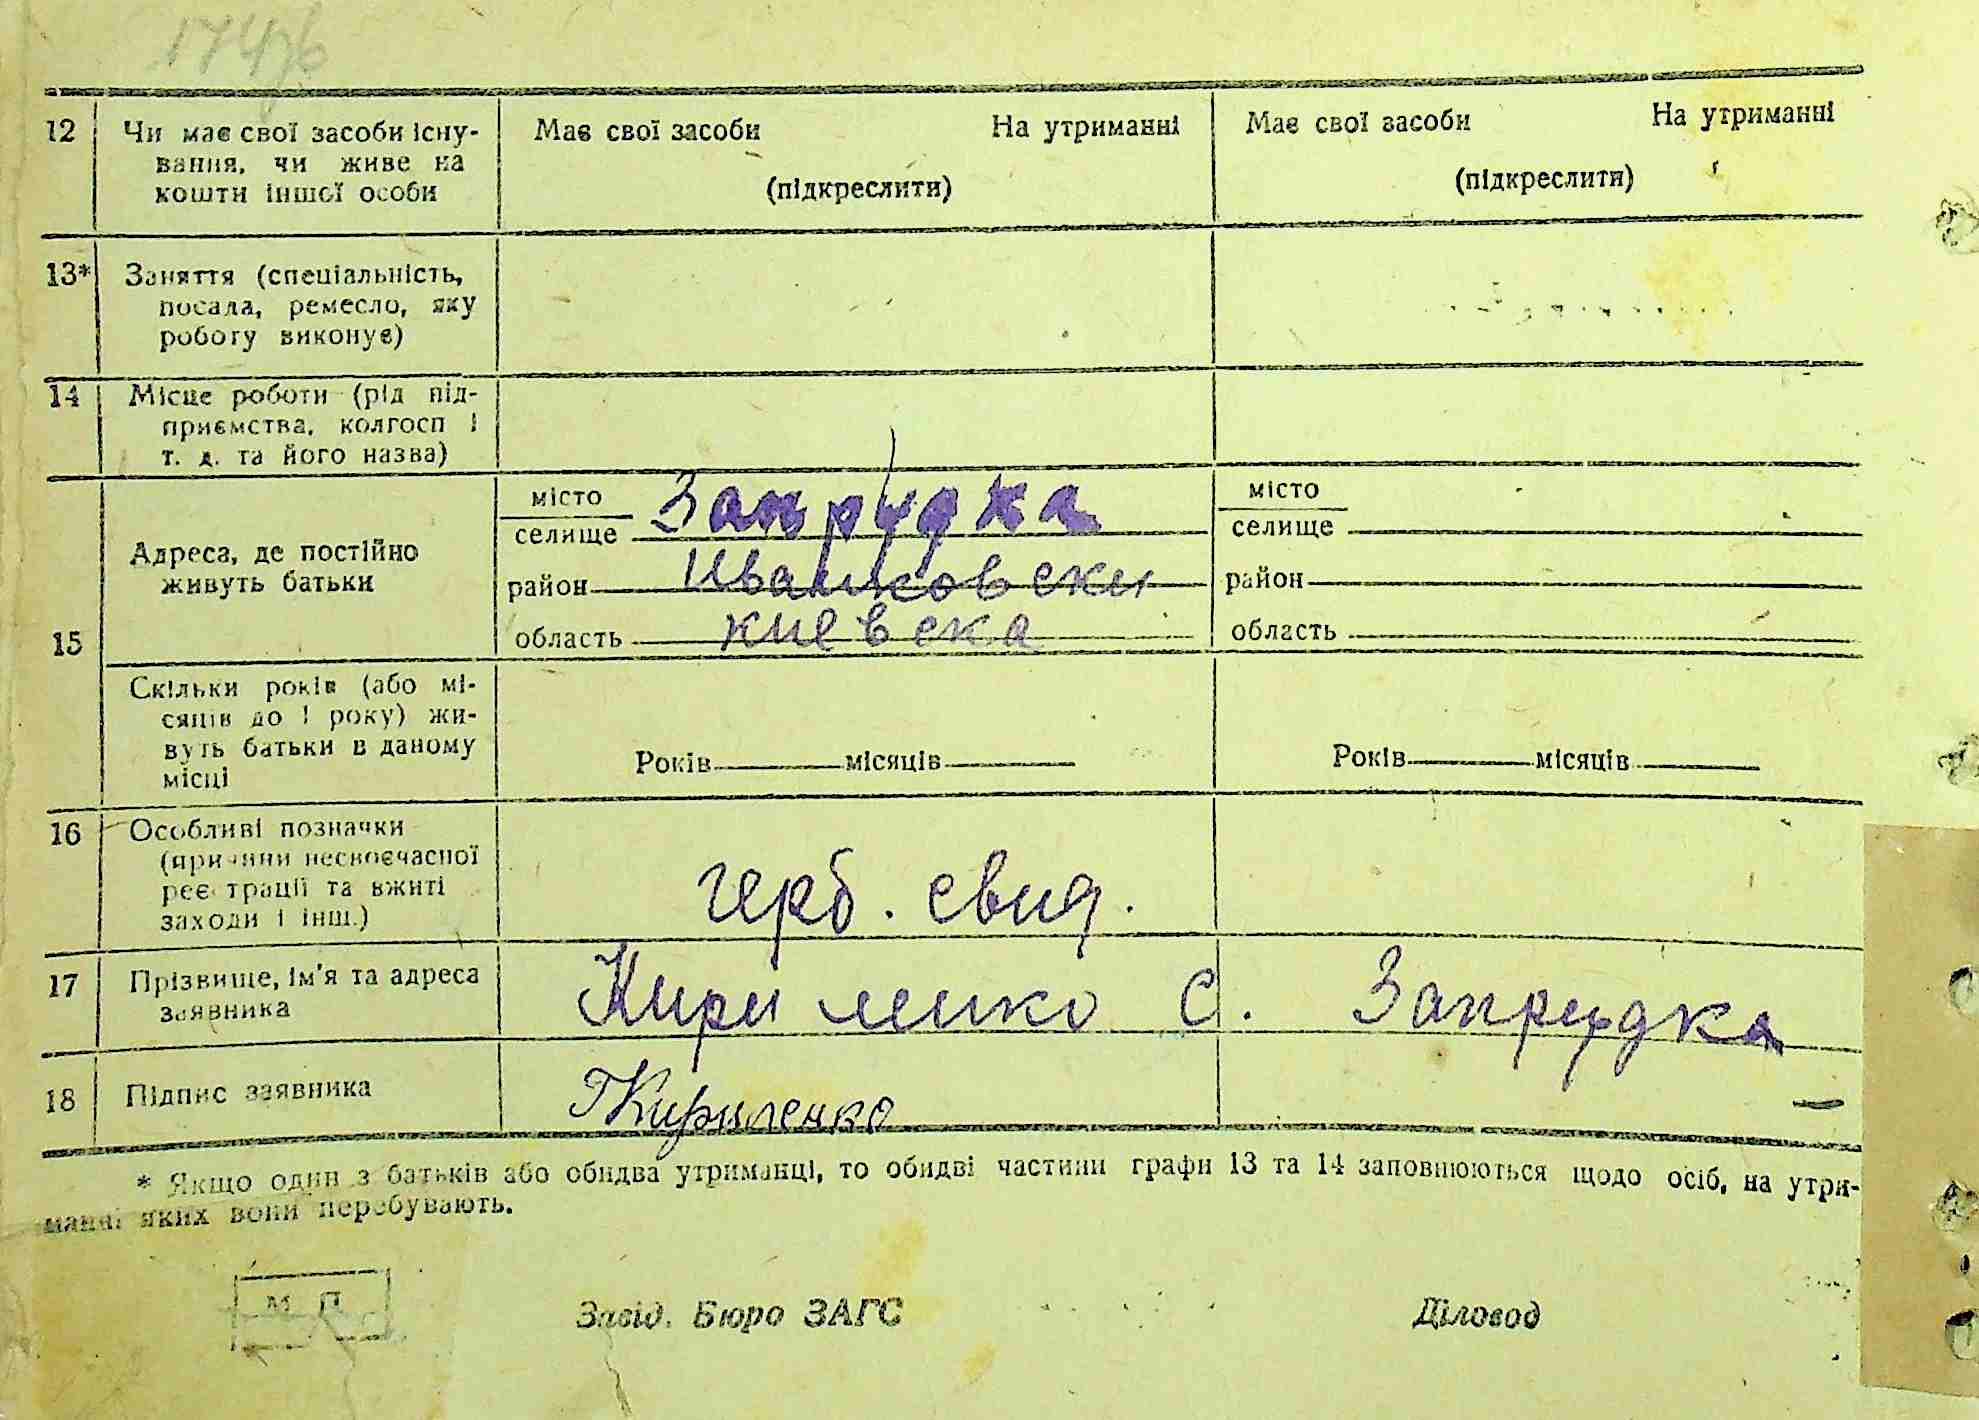 12 Чи має свої засоби існу-
вання, чи живе на
кошти іншої особи
Має свої засоби На утриманні
(підкреслити)
Має свої засоби На утриманні
(підкреслити)
13* Заняття (спеціальність,
посада, ремесло, яку
роботу виконує)
14 Місце роботи (рід під-
приємства, колгосп і
т. д. та його назва)
15 Адреса, де постійно
живуть батьки
місто
селище Запрудка
район Иванковски
область киевска
місто
селище
район
область
Скільки років (або мі-
сяців до 1 року) жи-
вуть батьки в даному
місці
Років місяців
Років місяців
16 Особливі позначки
(причини несвоєчасної
реєстрації та вжиті
заходи і інш.)
герб. свид.
17 Прізвище, ім'я та адреса
заявника
Кириленко С. Запрудка
18 Підпис заявника
Кириленко
* Якщо один з батьків або обидва утриманці, то обидві частини графи 13 та 14 заповнюються щодо осіб, на утри-
манні яких вони перебувають.
М П
Завід. Бюро ЗАГС
Діловод